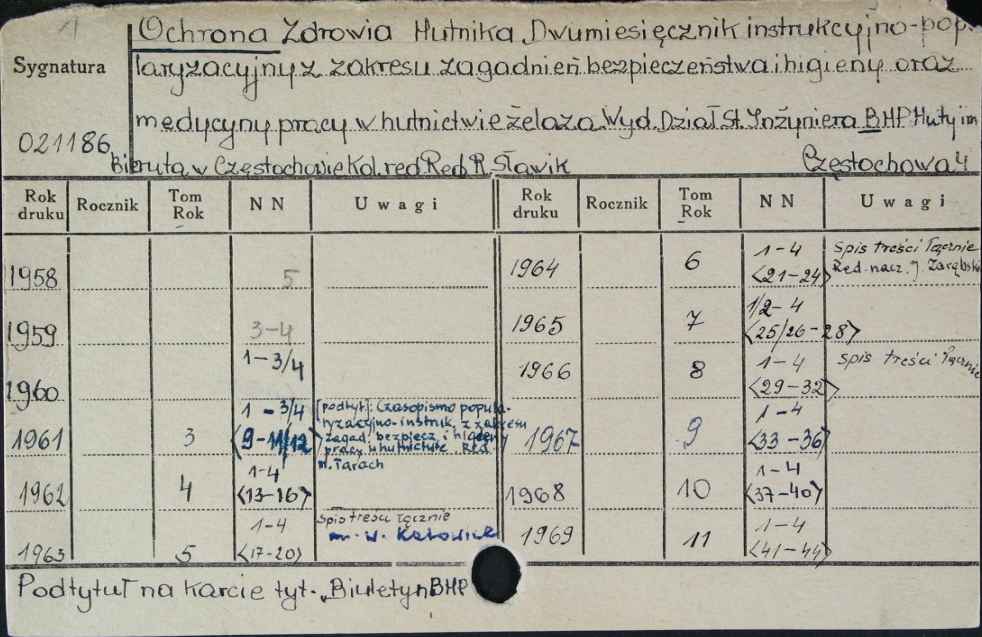 Ochrona Zdrowia Hutnika Dwumiesięcznik instrukcyjno-pop.
Sygnatura laryzacyjny z zakresu zagadnień bezpieczeństwa i higieny oraz
medycyny pracy w hutnictwie żelaza. Wyd. Dział St. Inżyniera BHP Huty im
021186
Bieruta w Częstochowie Kol. red. Red. R. Sławik Częstochowa 4
Rok druku Rocznik Tom Rok NN Uwagi Rok druku Rocznik Tom Rok NN Uwagi
1958 5
1959 3-4
1960 1-3/4
1961 3 1-3/4 <9-11/12> [podtyt]: Czasopismo popula-
ryzacyjno-instruk. z zakresu
zagad. bezpiecz. i higieny
pracy w hutnictwie. Red.
Tarach
1962 4 1-4 <13-16>
1963 5 1-4 <17-20> Spis treści łącznie
W. Katowice
1964 6 1-4 <21-24> Spis treści łącznie
Red. nacz. J. Zarębski
1965 7 1/2-4 <25/26-28>
1966 8 1-4 <29-32> Spis treści łącznie
1967 9 1-4 <33-36>
1968 10 1-4 <37-40>
1969 11 1-4 <41-44>
Podtytuł na karcie tyt. "Biuletyn BHP